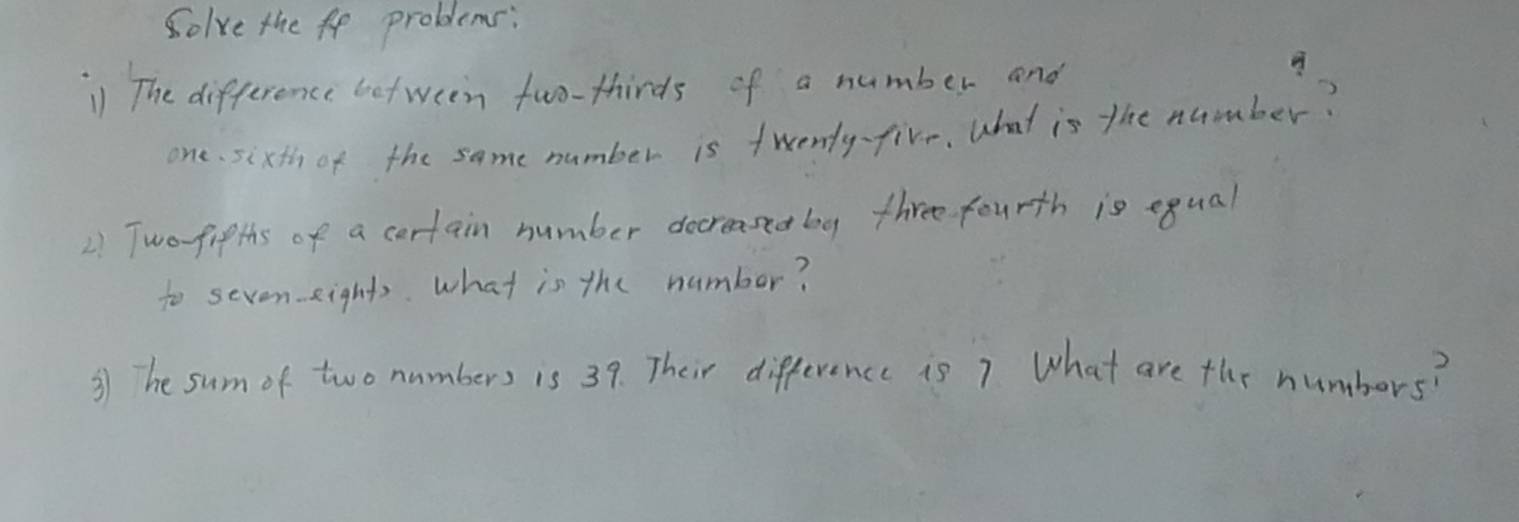 Solve the ff problems:
1) The difference between two-thirds of a number and
one-sixth of the same number is twenty-five. What is the number?
2) Two-fifths of a certain number decreased by three-fourth is equal
to seven-eights. What is the number?
3) The sum of two numbers is 39. Their difference is 7. What are the numbers?